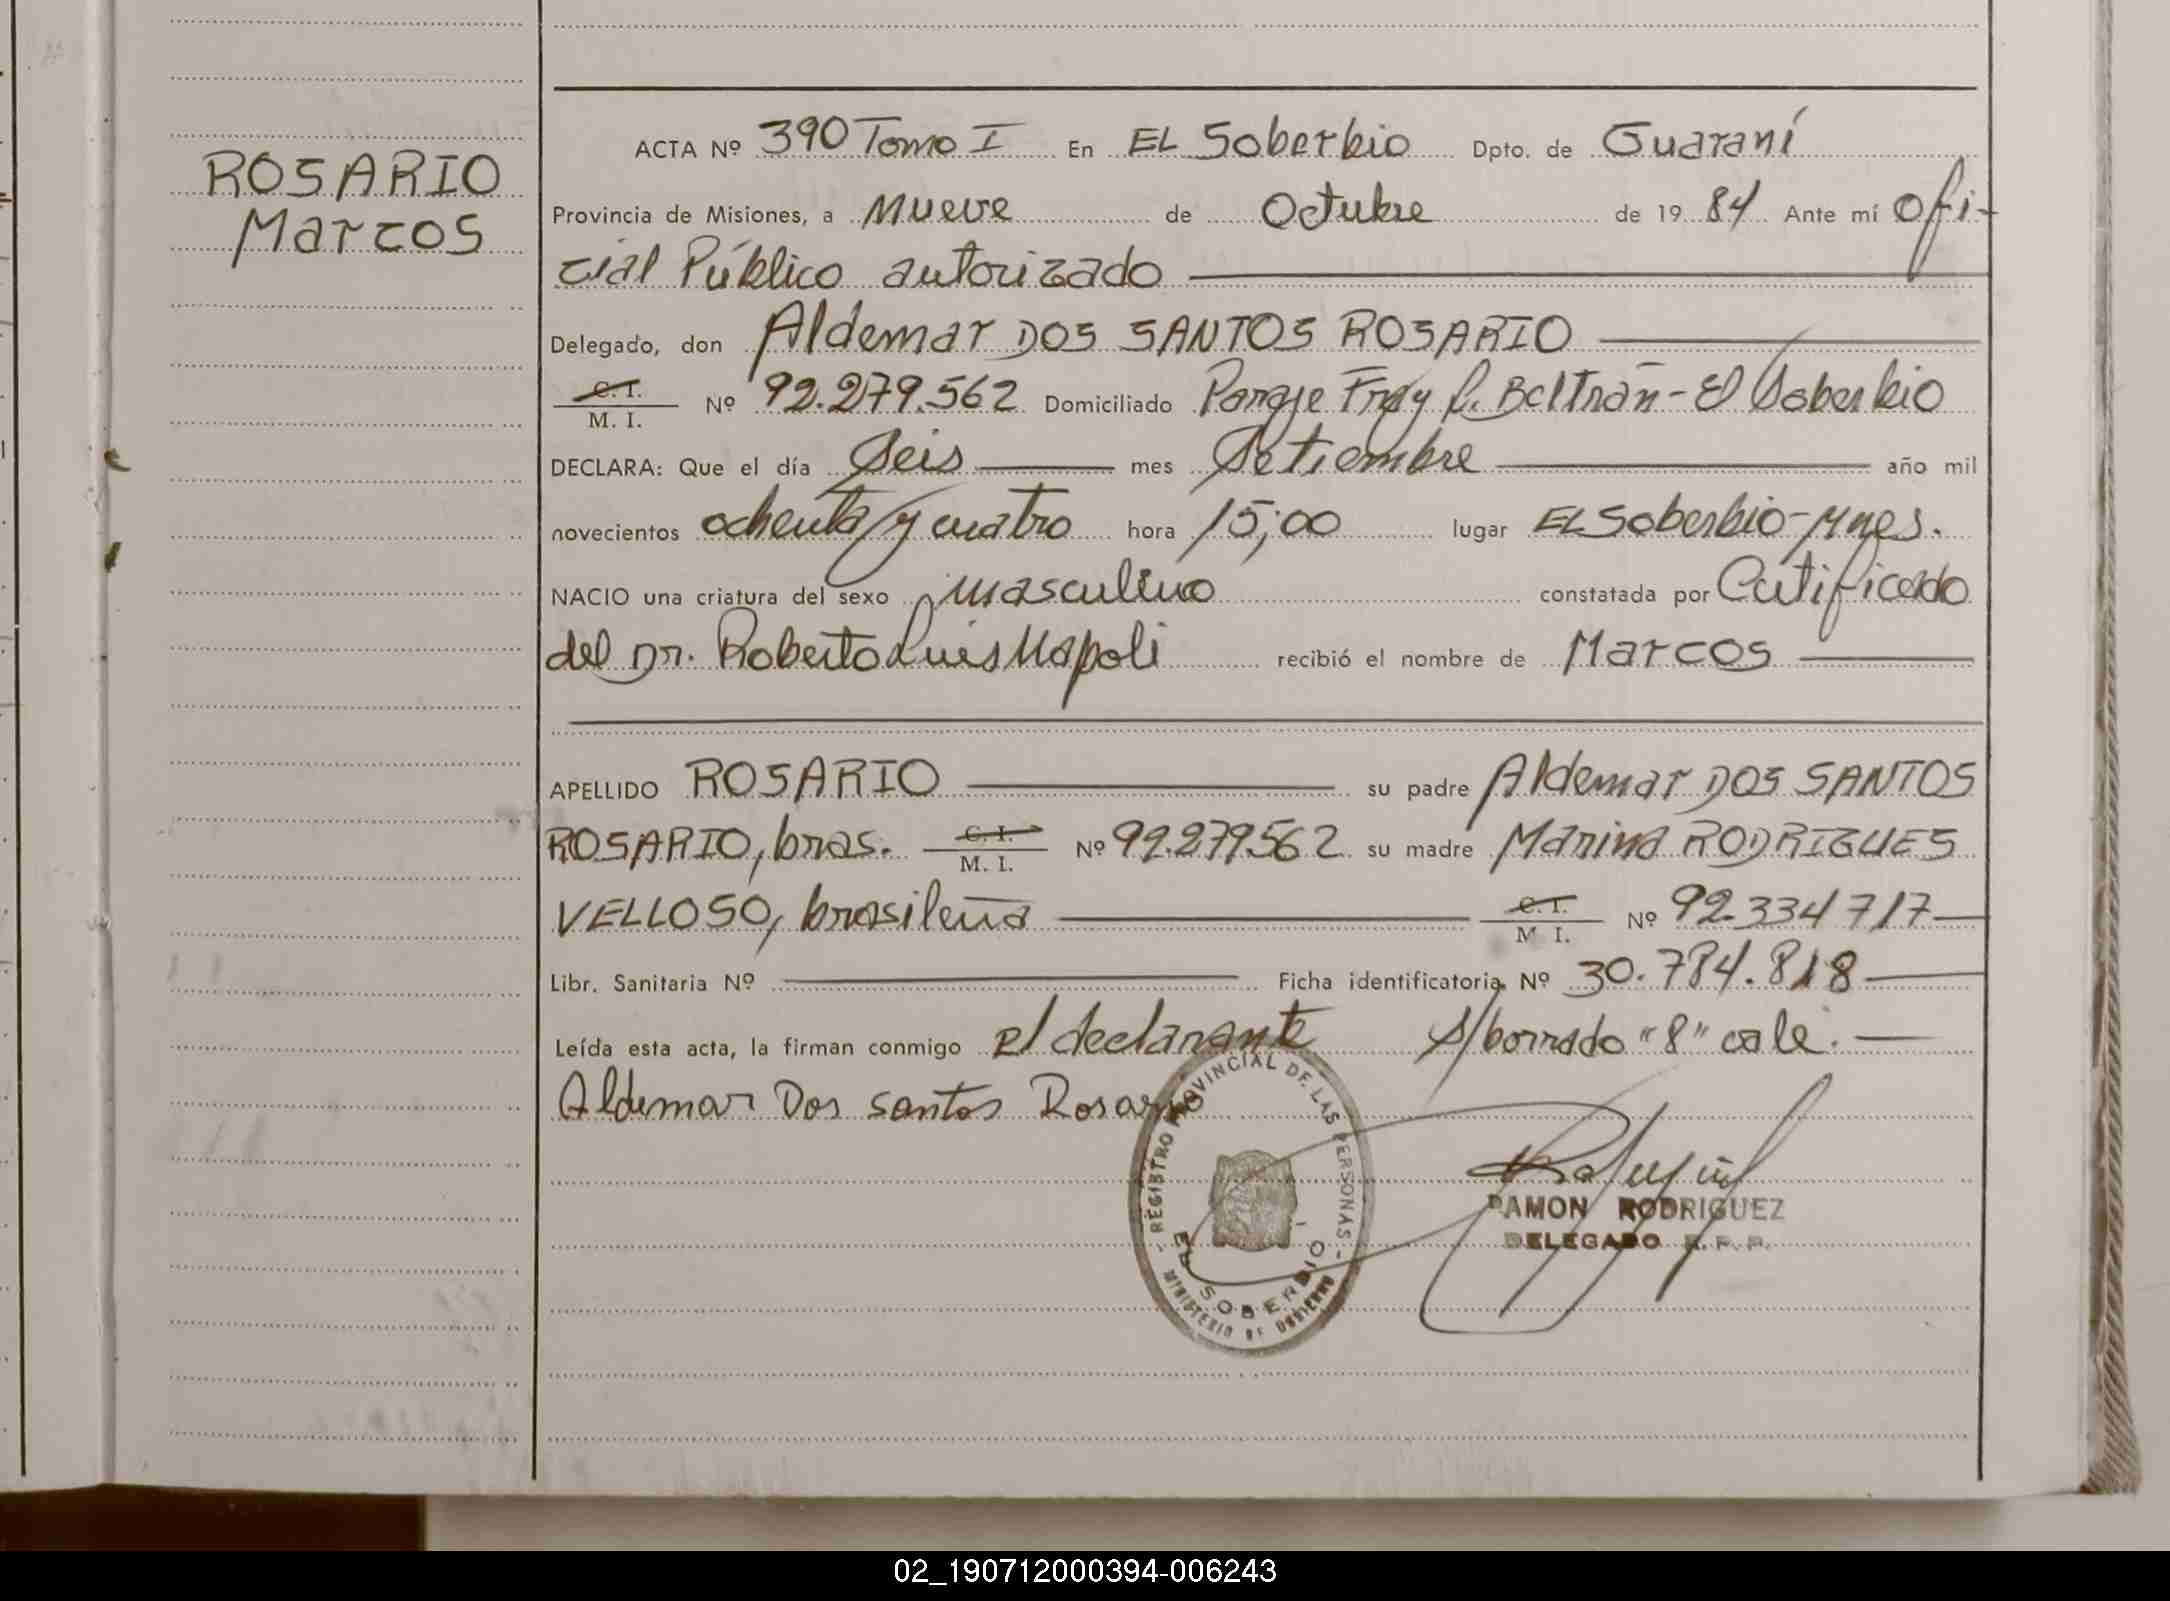 ROSARIO
Marcos
ACTA Nº 390 Tomo I En EL Soberbio Dpto. de Guaraní
Provincia de Misiones, a nueve de Octubre de 19 84 Ante mí Ofi-
cial Público autorizado
Delegado, don Aldemar DOS SANTOS ROSARIO
C. I.
M. I. Nº 92.279.562 Domiciliado Paraje Fray L. Beltrán - El Soberbio
DECLARA: Que el día Seis mes Setiembre año mil
novecientos ochenta y cuatro hora 15;00 lugar EL Soberbio - Mnes.
NACIO una criatura del sexo masculino constatada por Certificado
del Dr. Roberto Luis Napoli recibió el nombre de Marcos
APELLIDO ROSARIO su padre Aldemar DOS SANTOS
ROSARIO, bras. C. I. M. I. Nº 92.279.562 su madre Marina RODRIGUES
VELLOSO, brasileña C. I. M. I. Nº 92.334717
Libr. Sanitaria Nº Ficha identificatoria Nº 30.784.818
Leída esta acta, la firman conmigo el declarante S/borrado "8" vale.
Aldemar Dos santos Rosario
REGISTRO PROVINCIAL DE LAS PERSONAS
EL SOBERBIO
MINISTERIO DE GOBIERNO
RAMON RODRIGUEZ
DELEGADO R. P. P.
02_190712000394-006243